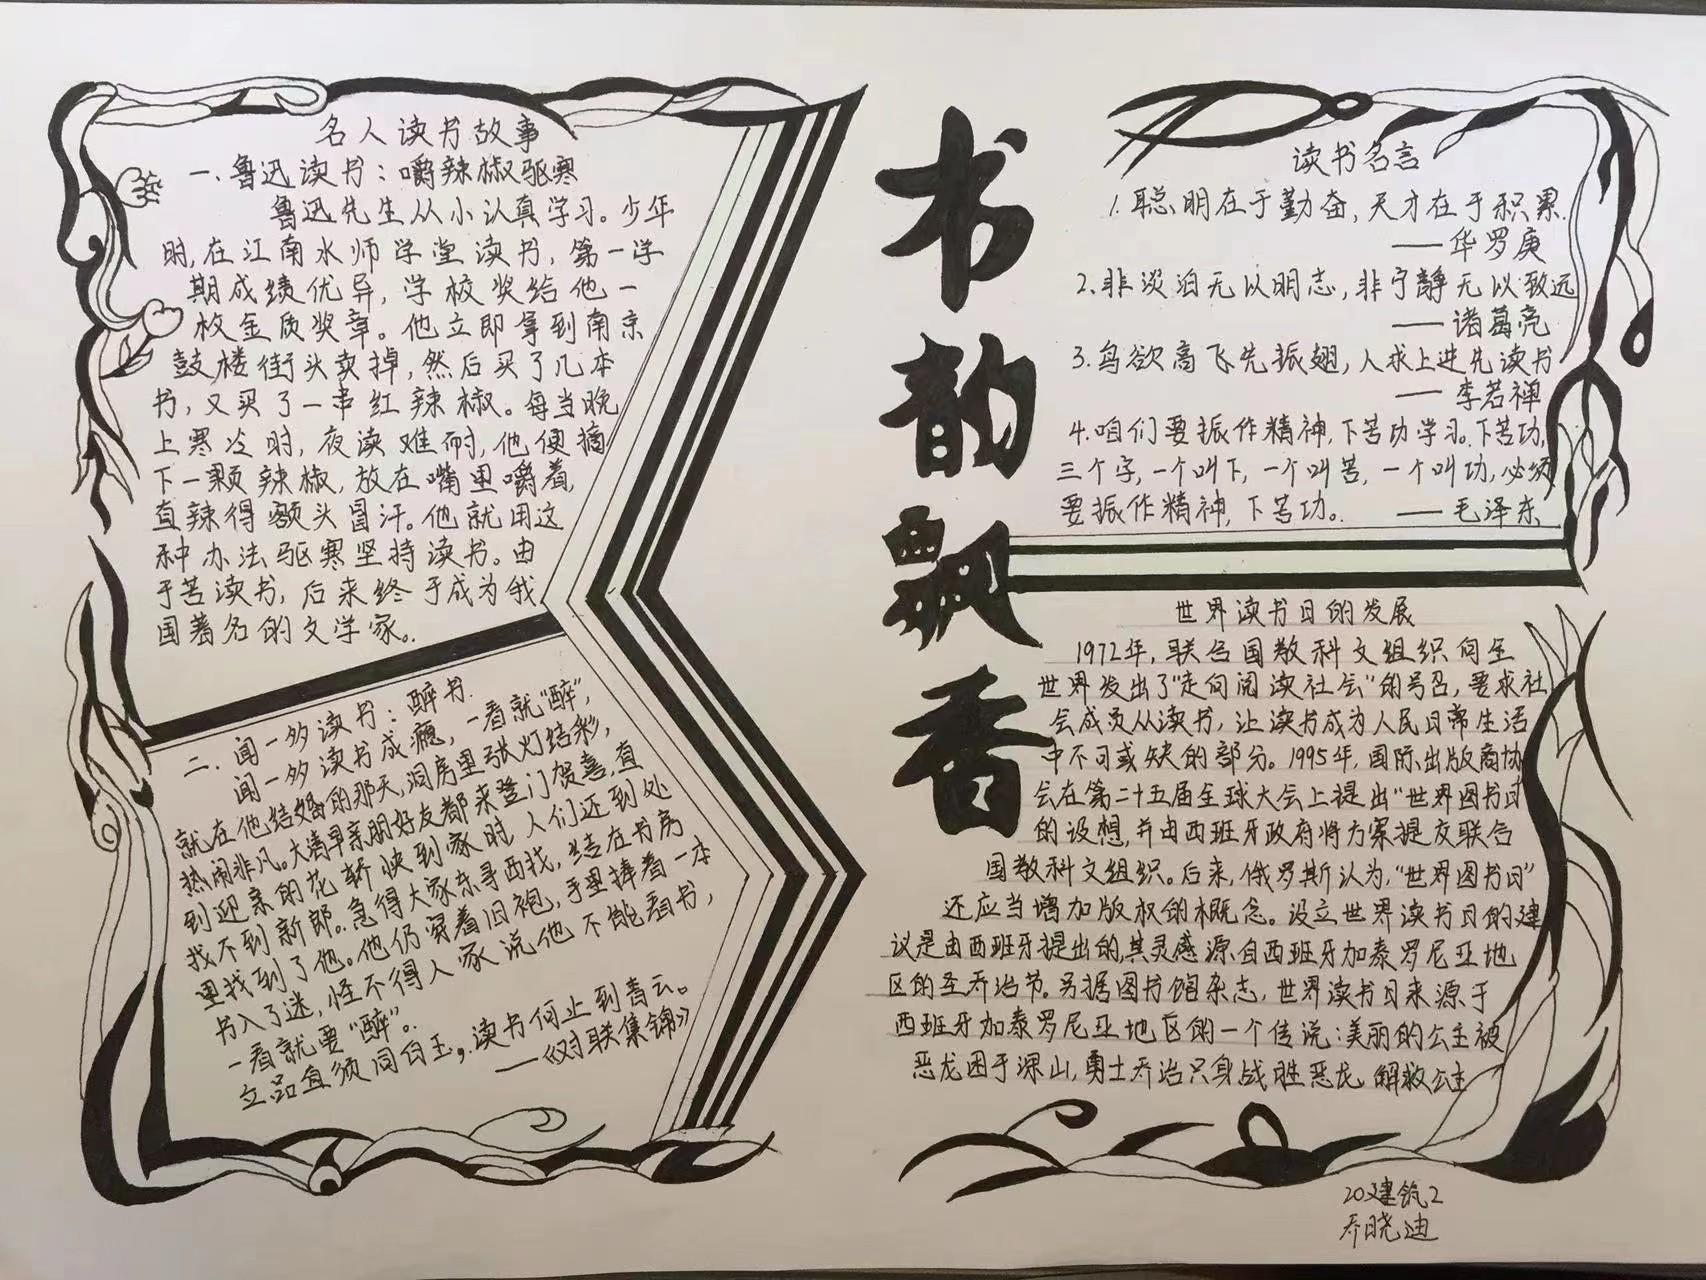 名人读书故事
一.鲁迅读书：嚼辣椒驱寒
鲁迅先生从小认真学习。少年
时,在江南水师学堂读书,第一学
期成绩优异,学校奖给他一
枚金质奖章。他立即拿到南京
鼓楼街头卖掉,然后买了几本
书,又买了一串红辣椒。每当晚
上寒冷时,夜读难耐,他便摘
下一颗辣椒,放在嘴里嚼着,
直辣得额头冒汗。他就用这
种办法驱寒坚持读书。由
于苦读书,后来终于成为我
国著名的文学家。
二.闻一多读书：醉书.
闻一多读书成瘾,一看就"醉",
就在他结婚的那天,洞房里张灯结彩,
热闹非凡。大清早亲朋好友都来登门贺喜,直
到迎亲的花轿快到家时,人们还到处
找不到新郎。急得大家东寻西找,结在书房
里找到了他。他仍穿着旧袍,手里捧着一本
书入了迷,怪不得人家说他不能看书,
一看就要"醉"。
立品直须同白玉,读书何止到青云。
——《对联集锦》
书韵飘香
读书名言
1.聪明在于勤奋,天才在于积累.
——华罗庚
2.非淡泊无以明志,非宁静无以致远
——诸葛亮
3.鸟欲高飞先振翅,人求上进先读书
——李若禅
4.咱们要振作精神,下苦功学习。下苦功,
三个字,一个叫下,一个叫苦,一个叫功,必须
要振作精神,下苦功。 ——毛泽东
世界读书日的发展
1972年,联合国教科文组织向全
世界发出了"走向阅读社会"的号召,要求社
会成员从读书,让读书成为人民日常生活
中不可或缺的部分。1995年,国际出版商协
会在第二十五届全球大会上提出"世界图书日
的设想,并由西班牙政府将方案提交联合
国教科文组织。后来,俄罗斯认为,"世界图书日"
还应当增加版权的概念。设立世界读书日的建
议是由西班牙提出的,其灵感源自西班牙加泰罗尼亚地
区的圣乔治节。另据图书馆杂志,世界读书日来源于
西班牙加泰罗尼亚地区的一个传说:美丽的公主被
恶龙困于深山,勇士乔治只身战胜恶龙,解救公主
20建筑2
乔晓迪